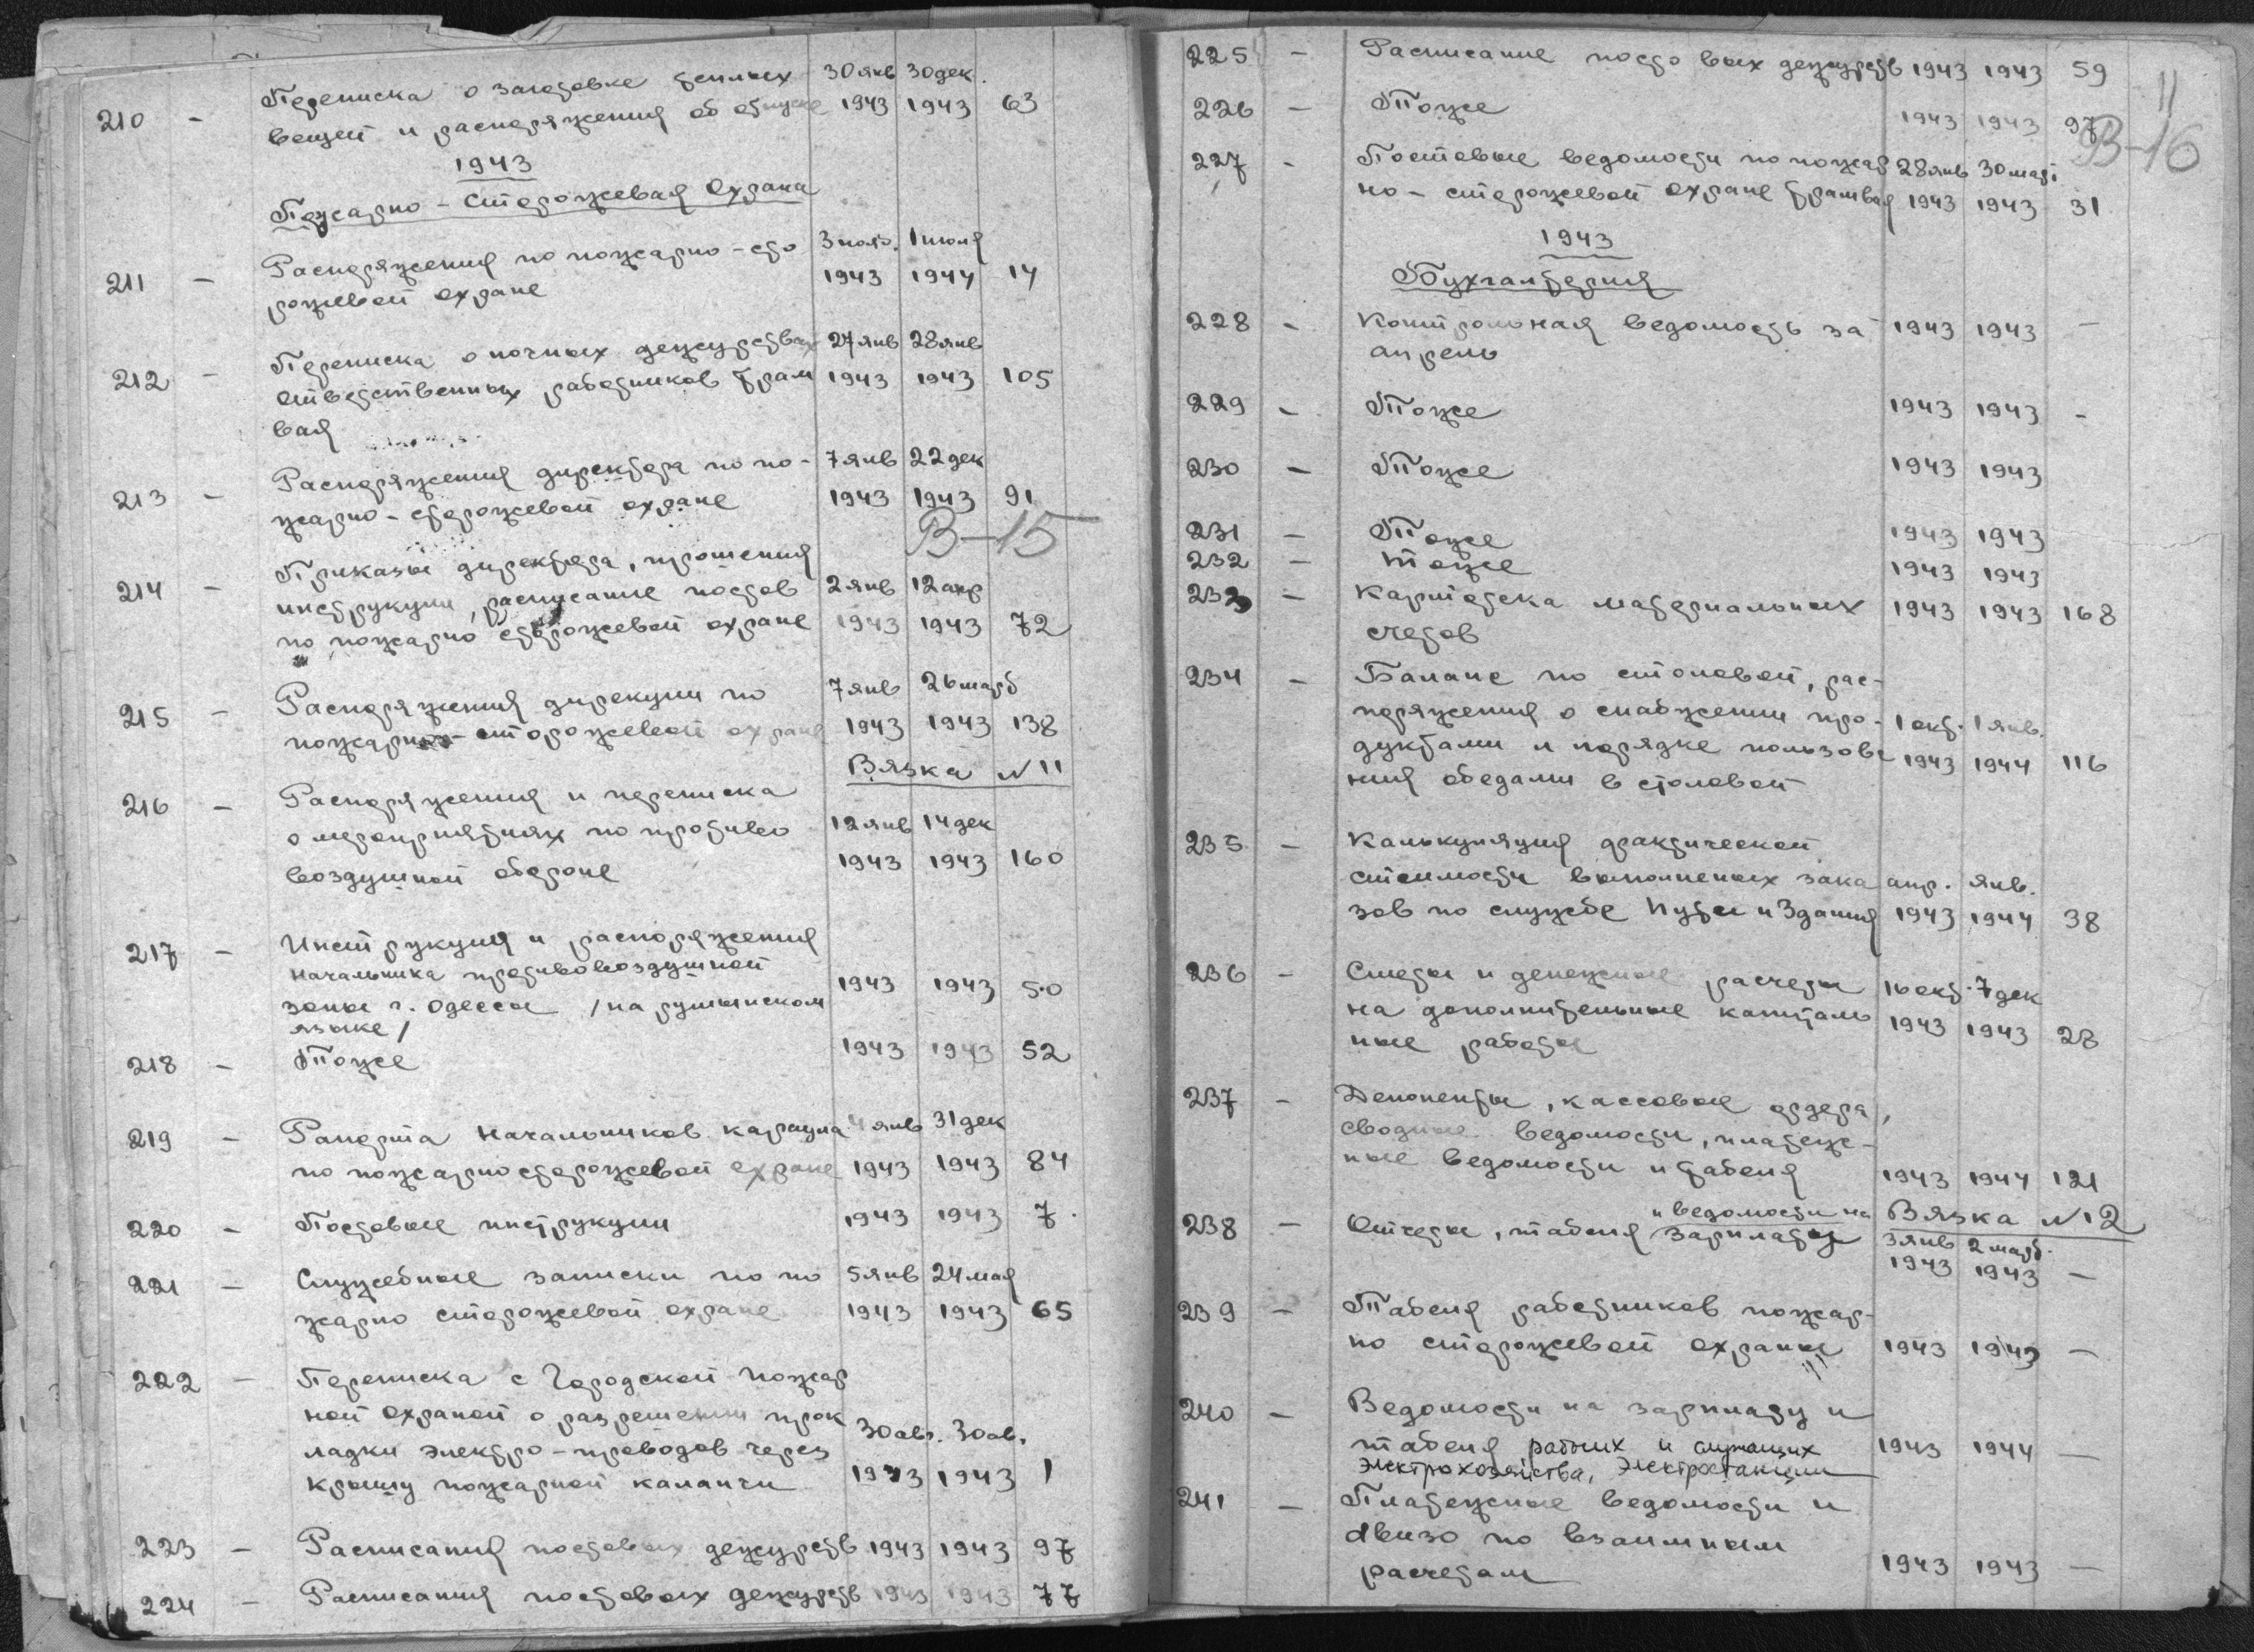 Переписка о заготовке теплых 30 янв 30 дек.
210 - вещей и распоряжения об отпуске 1943 1943 63
1943
Пожарно - сторожевая охрана
Распоряжения по пожарно - сто 3 нояб. 1 июля
211 - рожевой охране 1943 1944 14
Переписка о ночных дежурствах 27 янв 28 янв
212 - ответственных работников трам 1943 1943 105
вая
Распоряжения директора по по- 7 янв 22 дек
213 - жарно - сторожевой охране 1943 1943 91
В-15
Приказы директора, прошения
214 - инструкции, расписание постов 2 янв 12 апр
по пожарно сторожевой охране 1943 1943 72
Распоряжения дирекции по 7 янв 26 март
215 - пожарно - сторожевой охране 1943 1943 138
Вязка №11
216 - Распоряжения и переписка
о мероприятиях по противо 12 янв 14 дек
воздушной обороне 1943 1943 160
217 - Инструкция и распоряжения
начальника противовоздушной
зоны г. Одессы /на румынском 1943 1943 50
языке/
218 - Тоже 1943 1943 52
219 - Рапорта начальников караула 4 янв 31 дек
по пожарно сторожевой охране 1943 1943 84
220 - Постовые инструкции 1943 1943 7.
221 - Служебные записки по по 5 янв 24 мая
жарно сторожевой охране 1943 1943 65
222 - Переписка с Городской пожар
ной охраной о разрешении прок
ладки электро - проводов через 30 авг. 30 ав.
крышу пожарной каланчи 1943 1943 1
223 - Расписания постовых дежурств 1943 1943 97
224 - Расписания постовых дежурств 1943 1943 77
225 - Расписание посто вых дежурств 1943 1943 59
11
226 - Тоже 1943 1943 97
В-16
227 - Постовые ведомости по пожар 28 янв 30 март
но - сторожевой охране трамвая 1943 1943 31
1943
Бухгалтерия
228 - Контрольная ведомость за 1943 1943 -
апрель
229 - Тоже 1943 1943 -
230 - Тоже 1943 1943
231 - Тоже 1943 1943
232 - тоже 1943 1943
233 - Картотека материальных 1943 1943 168
счетов
234 - Баланс по столовой, рас-
поряжения о снабжении про- 1 окт. 1 янв.
дуктами и порядке пользова 1943 1944 116
ния обедами в столовой
235 - Калькуляция фактической
стоимости выполненых зака апр. янв.
зов по службе Пути и Здания 1943 1944 38
236 - Сметы и денежные расчеты 16 окт. 7 дек
на дополнительные капиталь 1943 1943 28
ные работы
237 - Депоненты, кассовые ордера,
сводные ведомости, платеж-
ные ведомости и табеля 1943 1944 121
и ведомости на Вязка №12
238 - Отчеты, табеля зарплату 3 янв 2 март.
1943 1943 -
239 - Табеля работников пожар-
но сторожевой охраны 1943 1943 -
240 - Ведомости на зарплату и
табеля рабочих и служащих 1943 1944 -
электрохозяйства, электростанции
241 - Платежные ведомости и
авизо по взаимным
расчетам 1943 1943 -